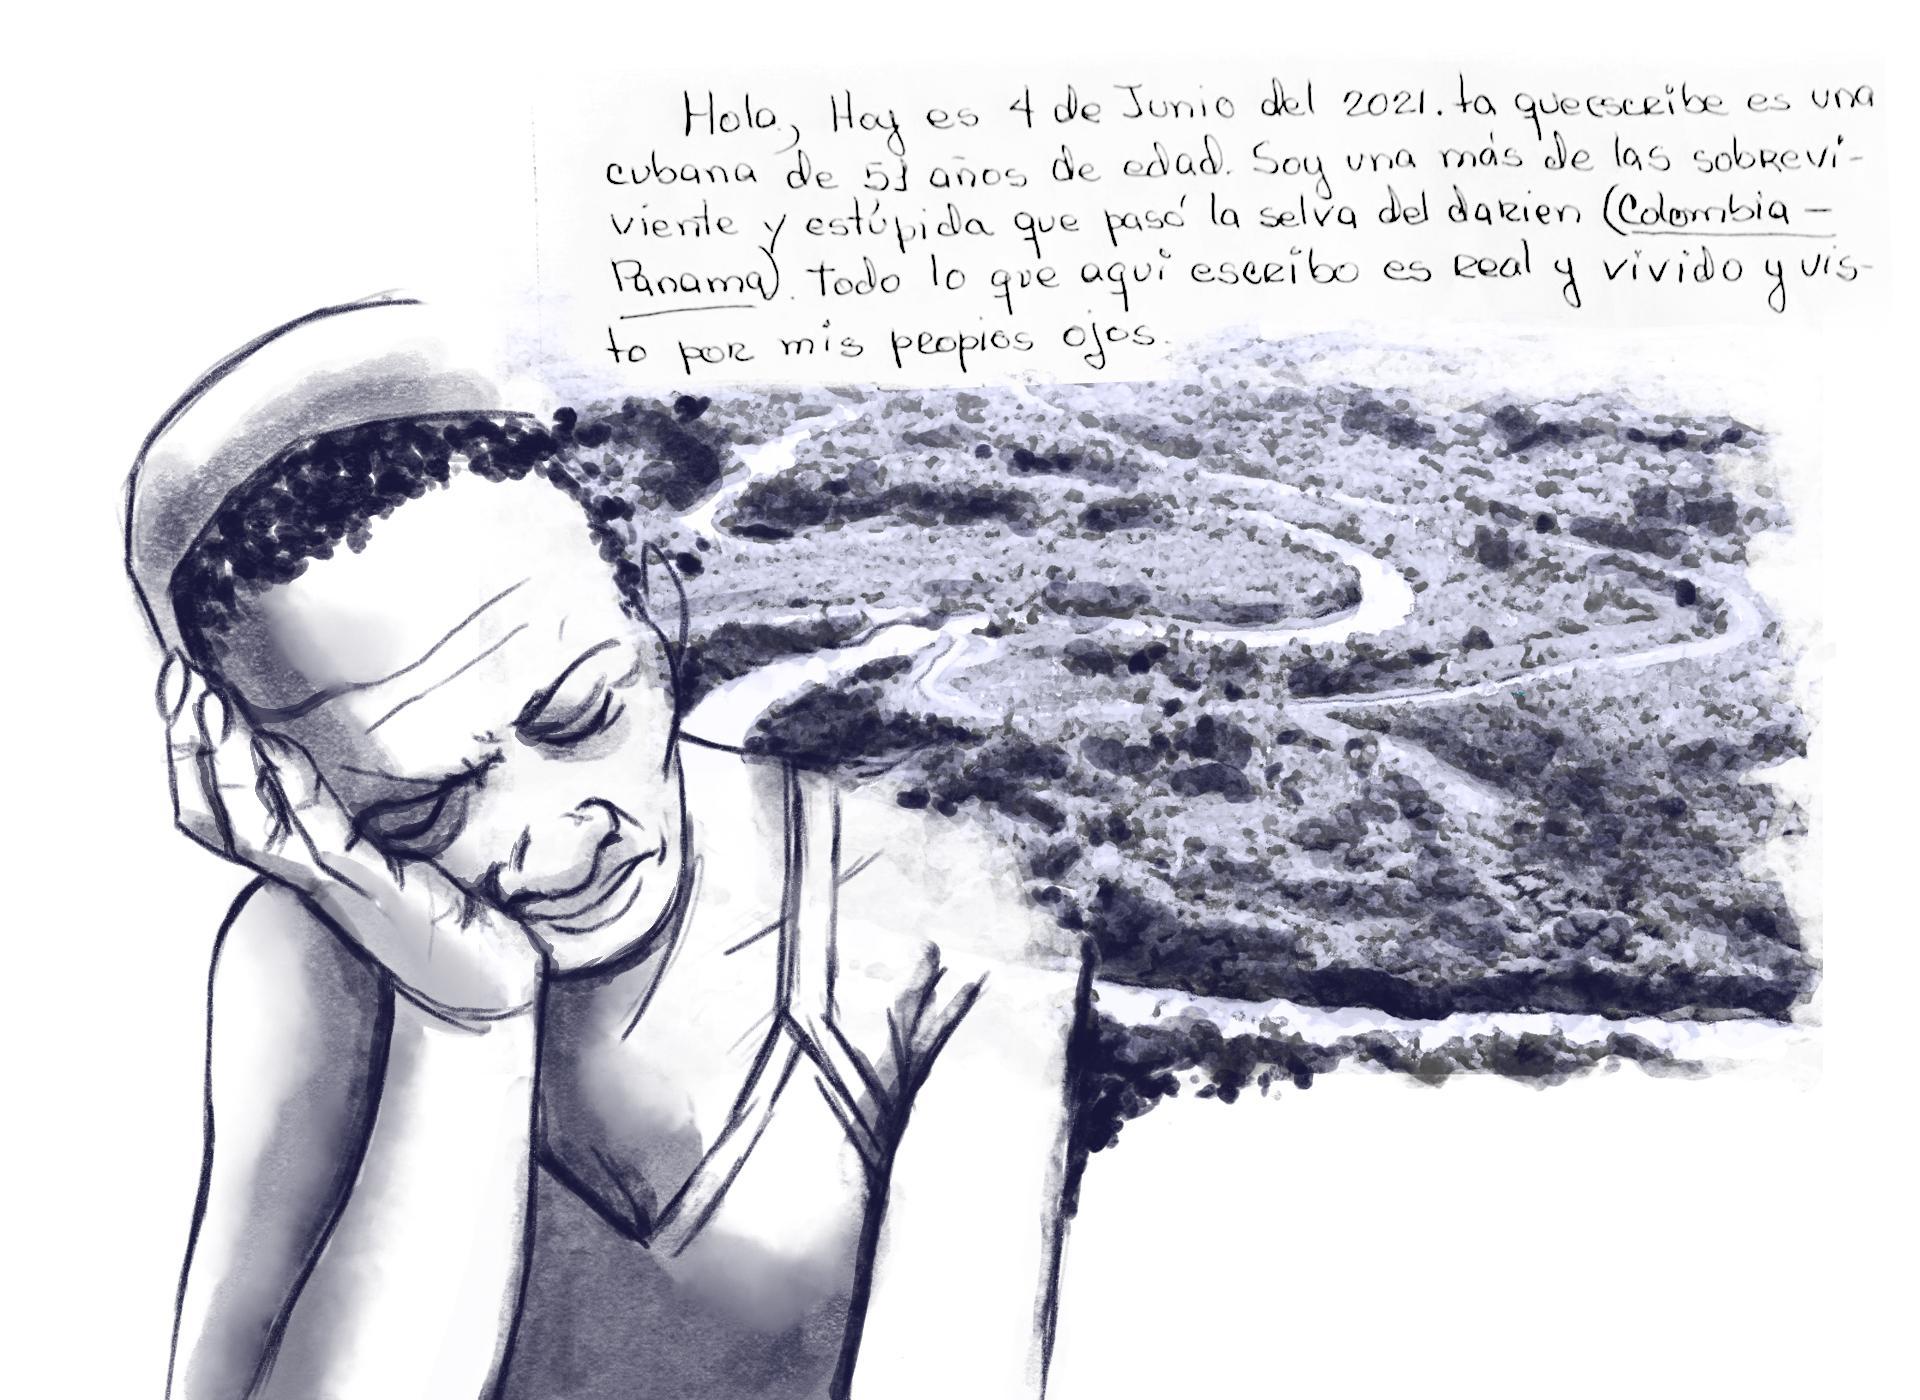 Hola, Hoy es 4 de Junio del 2021. ta que escribe es una
cubana de 51 años de edad. Soy una más de las sobrevi-
viente y estúpida que pasó la selva del darien (Colombia -
Panama). Todo lo que aquí escribo es real y vivido y vis-
to por mis propios ojos.